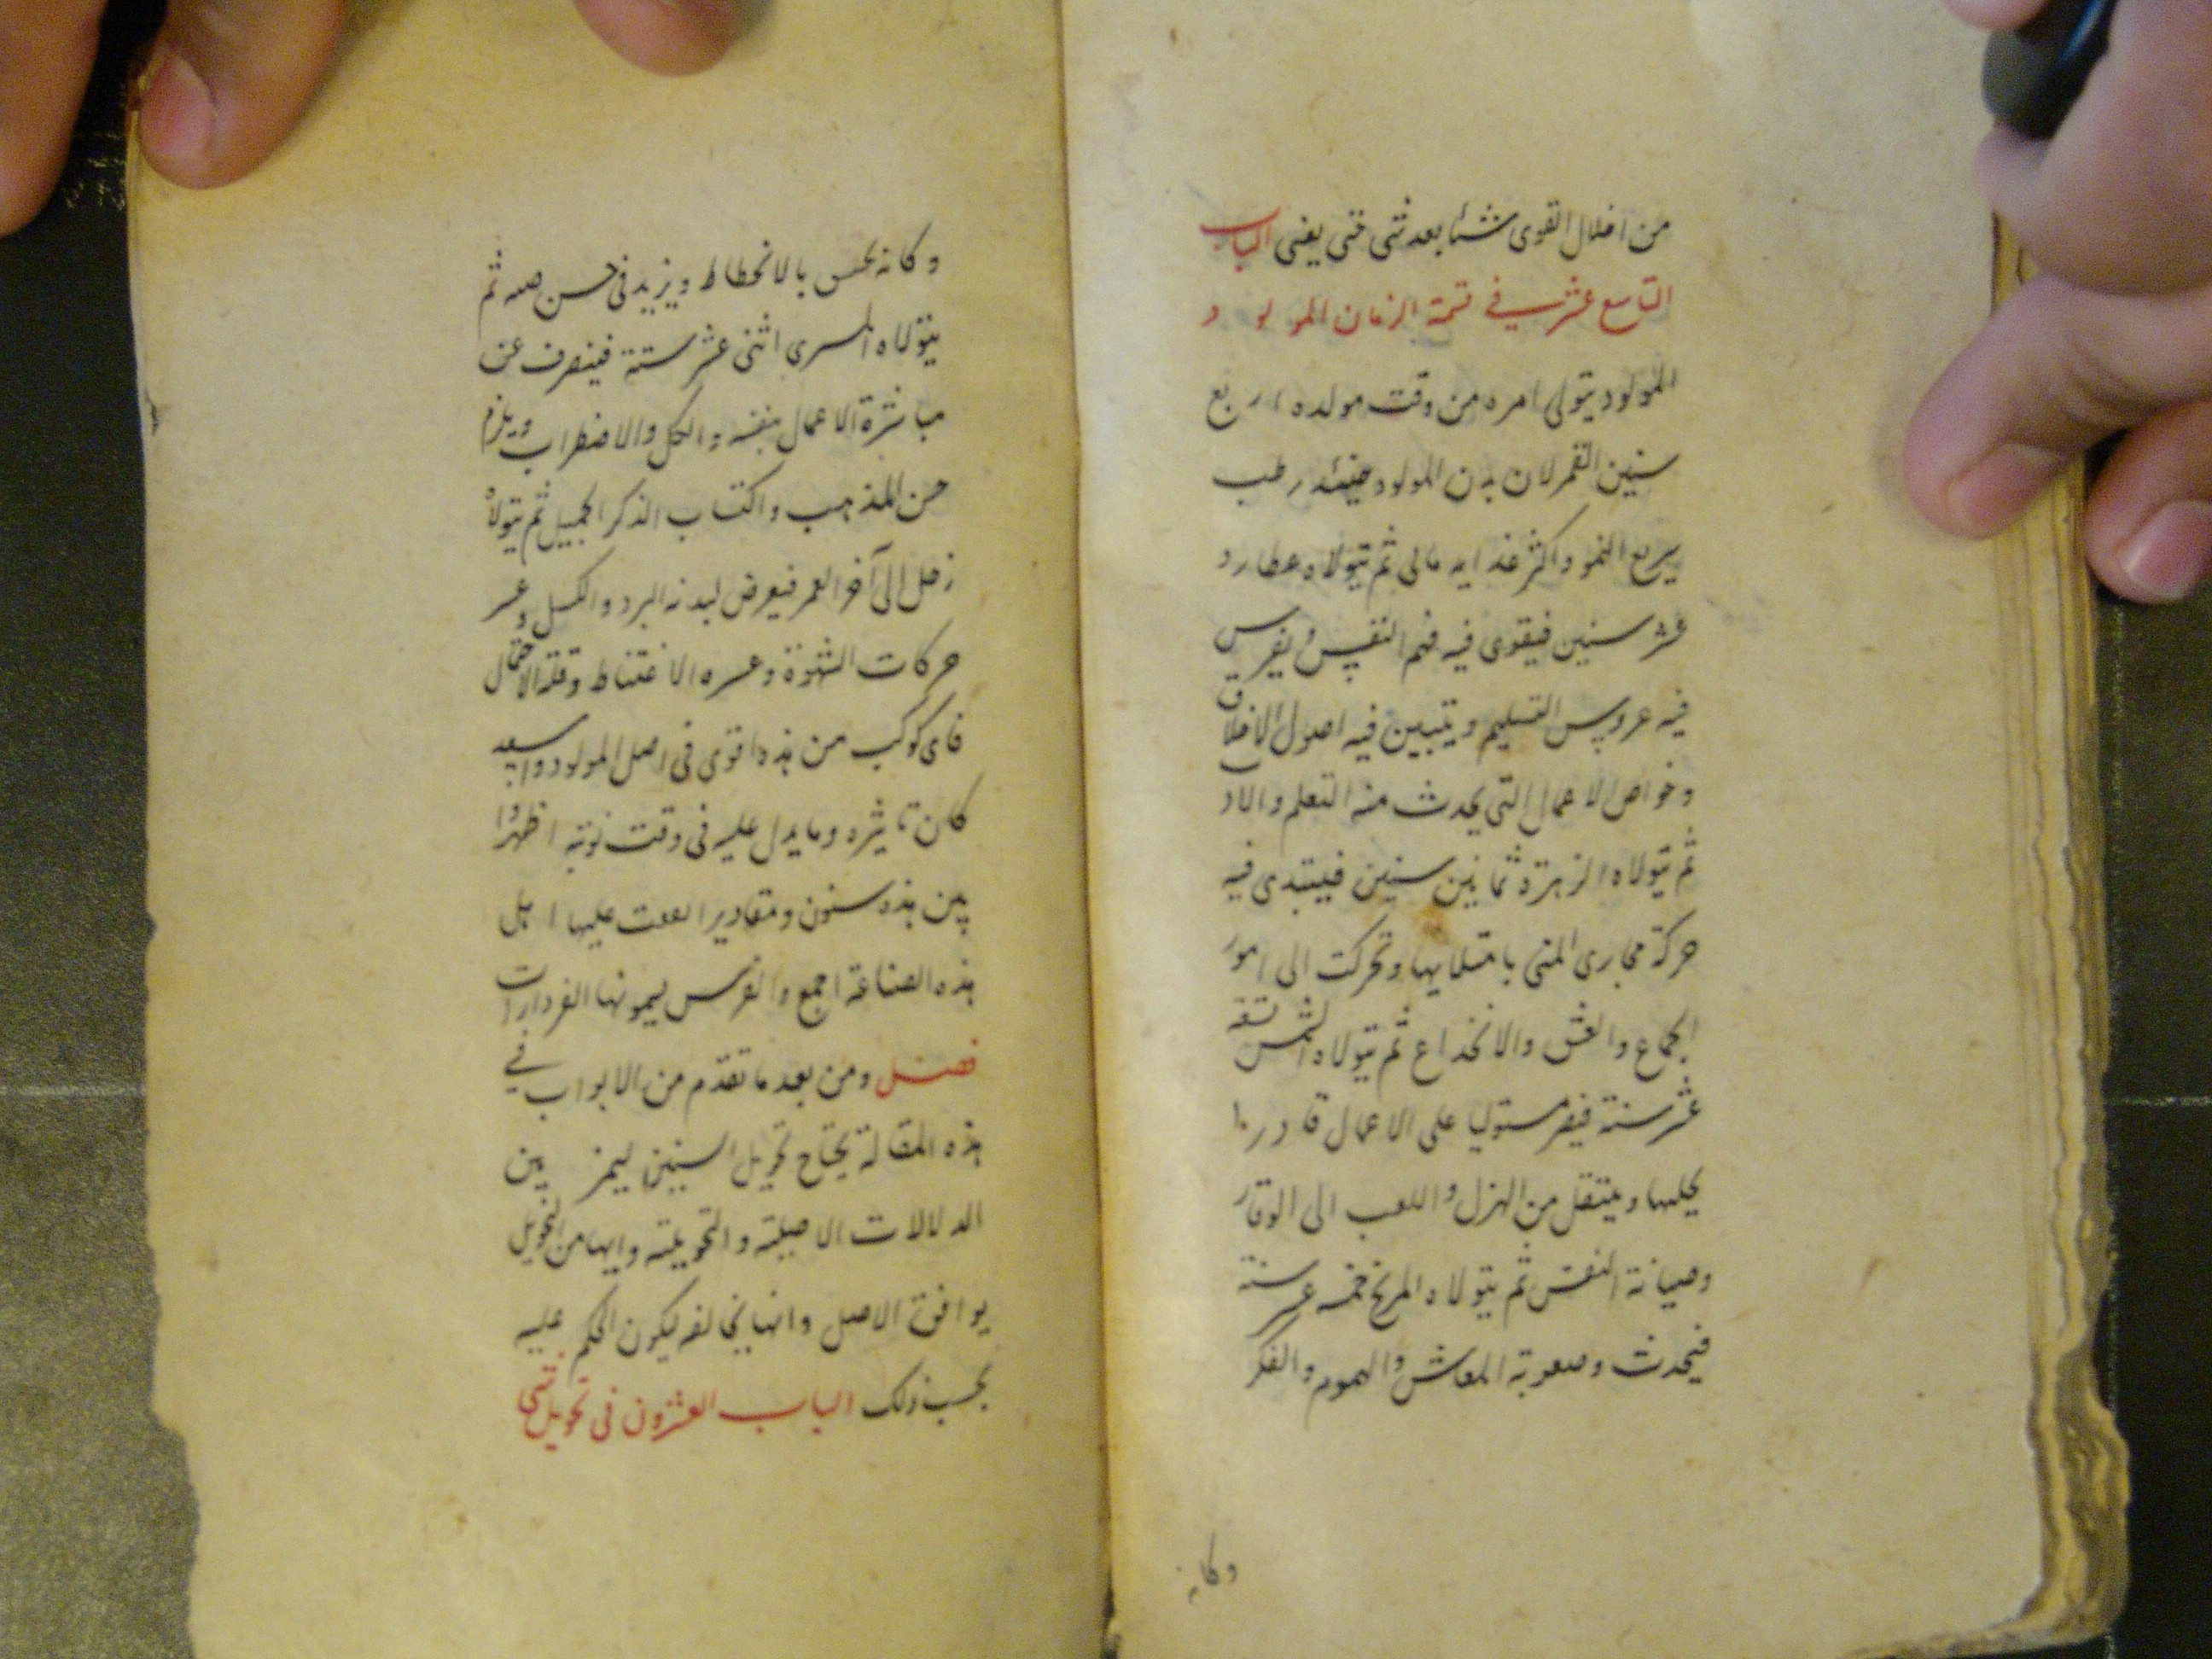 من اخلال القوى شيئا بعد شى حتى يفنى الباب
التاسع عشر في قسمة الزمان المولود
المولود يتولى امره من وقت مولده اربع
سنين القمر لان بدن المولود حينئذ رطب
سريع النمو واكثر غذايه مائى ثم يتولاه عطارد
عشر سنين فيقوى فيه فهم النفس و يغرس
فيه عروس التسليم ويتبين فيه اصول الاخلاق
وخواص الاعمال التى يحدث منه التعلم والاد
ثم يتولاه الزهرة ثمانين سنين فيبتدى فيه
حركة مجارى المنى بامتلايها وتحركت الى امور
الجماع والعشق والانخداع ثم يتولاه الشمس تسعة
عشر سنة فيصر مستوليا على الاعمال قادرا
يحلها وينتقل من الهزل واللعب الى الوقار
وصيانة النفس ثم يتولاه المريخ خمسه عشر سنة
فيحدث وصعوبة المعاش والهموم والفكر
وكانه
وكانه يحس بالانحطاط ويزيد فى حسن ثم
يتولاه المسرى اثنى عشر سنة فينصرف عن
مباشرة الاعمال بنفسه والكل والاضطراب ويلزم
حسن المذهب واكتساب الذكر الجميل ثم يتولاه
زحل الى آخر العمر فيعرض لبدنه البرد والكسل وعسر
حركات الشهوة وعسره الاغتناط وقلة الاحتمال
فاى كوكب من هذه اقوى فى اصل المولود واسعد
كان تاثيره وما يدل عليه فى وقت نوبته اظهر وا
بين هذه سنون ومقادير عليها اهل
هذه الصناعة اجمع والفرس يسمونها الفردارات
فصل ومن بعد ما تقدم من الابواب في
هذه المقالة يحتاج تحويل السنين ليمز بين
الدلالات الاصيلته والتحويلته وايها من التحويل
يوافق الاصل وانها يخالفه ليكون الحكم عليه
بحسب ذلك الباب العشرون فى تحويل سنى